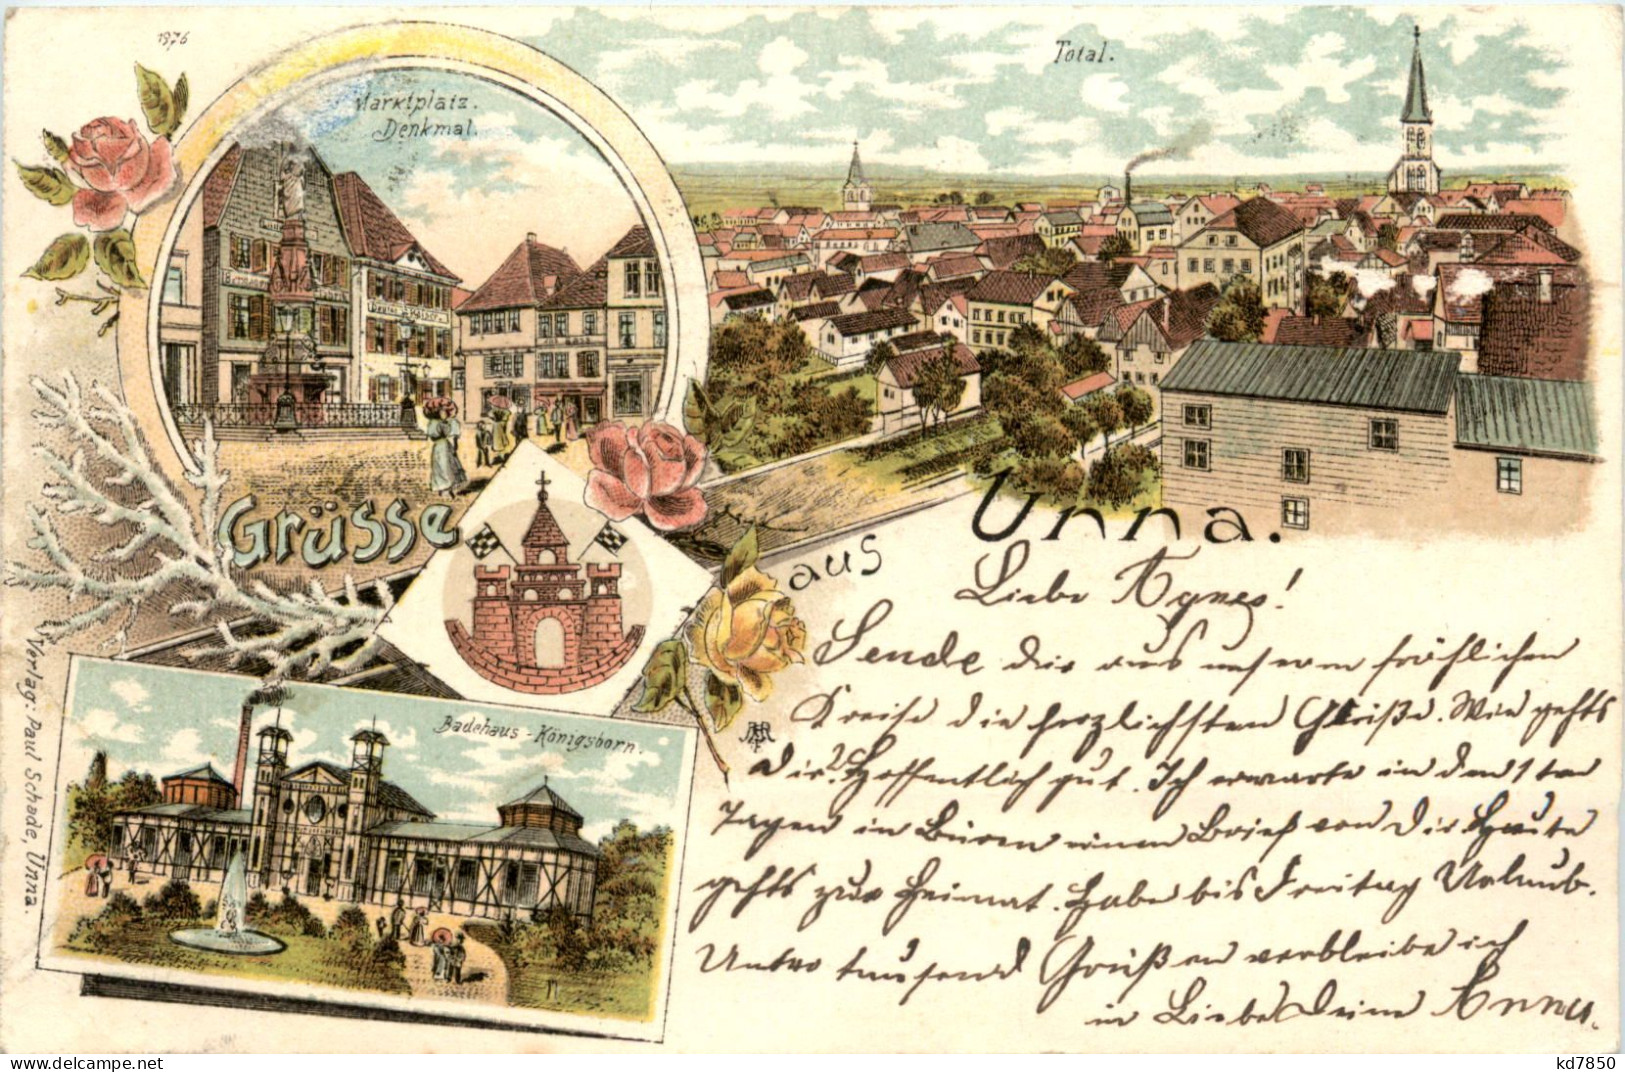 1976
Marktplatz.
Denkmal.
Total.
Grüsse
aus
Unna.
Badehaus - Königsborn.
Verlag. Paul Schade, Unna.
Liebe Agnes!
Sende dir aus unserem fröhlichen
Kreise die herzlichsten Grüße. Wie gehts
Dir? Hoffentlich gut. Ich erwarte in den 1ten
Tagen in Büren einen Brief von Dir. Heute
gehts zur Heimat. Habe bis Freitag Urlaub.
Unter tausend Grüßen verbleibe ich
in Liebe Deine Anna.
kd7850